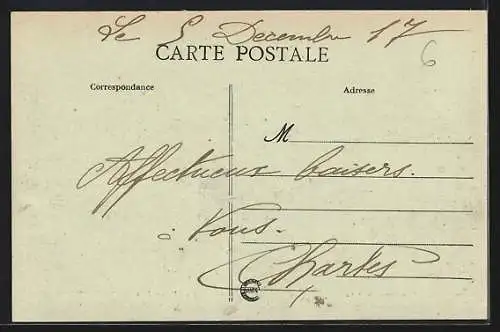 Le 5 Decembre 17
CARTE POSTALE
6
Correspondance
Adresse
M
Affectueux baisers.
Vous.
Charles